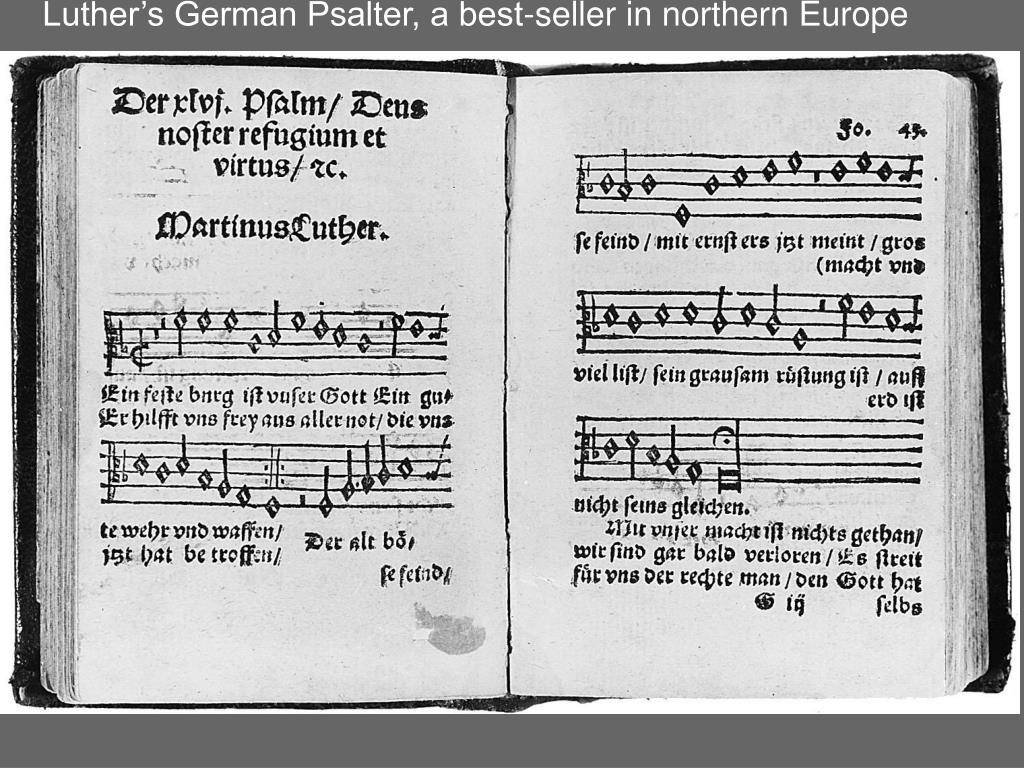 Luther’s German Psalter, a best-seller in northern Europe
Der xlvj. Psalm/ Deus
noster refugium et
virtus/ ꝛc.
Martinus Luther.
Ein feste burg ist vnser Gott Ein gu⸗
Er hilfft vns frey aus aller not/ die vns
te wehr vnd waffen/
jtzt hat be troffen/
Der alt bö⸗
se feind/
Fo. 43.
se feind / mit ernst ers jtzt meint / gros
(macht vnd
viel list/ sein grausam rüstung ist / auff
erd ist
nicht seins gleichen.
Mit vnser macht ist nichts gethan/
wir sind gar bald verloren / Es streit
für vns der rechte man / den Gott hat
G iij
selbs